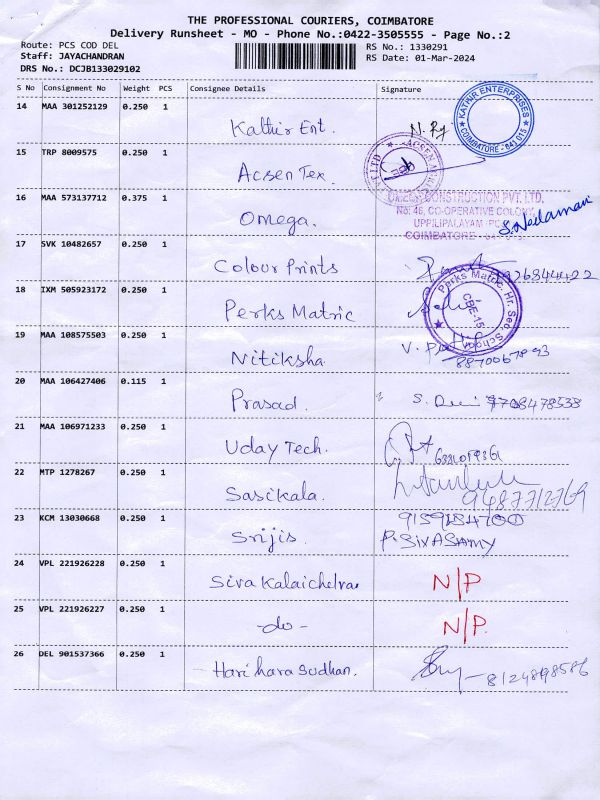 THE PROFESSIONAL COURIERS, COIMBATORE
Delivery Runsheet - MO - Phone No.:0422-3505555 - Page No.:2
Route: PCS COD DEL
RS No.: 1330291
Staff: JAYACHANDRAN
RS Date: 01-Mar-2024
DRS No.: DCJB133029102
S No Consignment No Weight PCS Consignee Details Signature
14 MAA 301252129 0.250 1 Kathir Ent.
KATHIR ENTERPRISES
COIMBATORE - 641 015
15 TRP 8009575 0.250 1 Acsen Tex.
16 MAA 573137712 0.375 1 Omega.
OMEGA CONSTRUCTION PVT. LTD.
No: 46, CO-OPERATIVE COLONY
UPPILIPALAYAM
COIMBATORE
17 SVK 10482657 0.250 1 Colour Prints
18 IXM 505923172 0.250 1 Perks Matric
Perks Matric. Hr. Sec. School
CBE-15
19 MAA 108575503 0.250 1 Nitiksha
20 MAA 106427406 0.115 1 Prasad.
21 MAA 106971233 0.250 1 Uday Tech.
22 MTP 1278267 0.250 1 Sasikala.
9487712769
23 KCM 13030668 0.250 1 Srijis
P. SIVASAMY
24 VPL 221926228 0.250 1 Siva Kalaichelva N/P
25 VPL 221926227 0.250 1 -do- N/P.
26 DEL 901537366 0.250 1 Hari hara Sudhan.